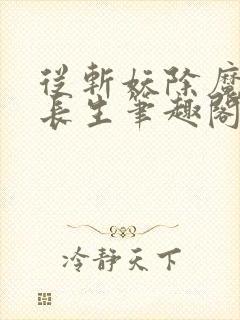 從斬妖除魔
長生筆趣閣
冷靜天下